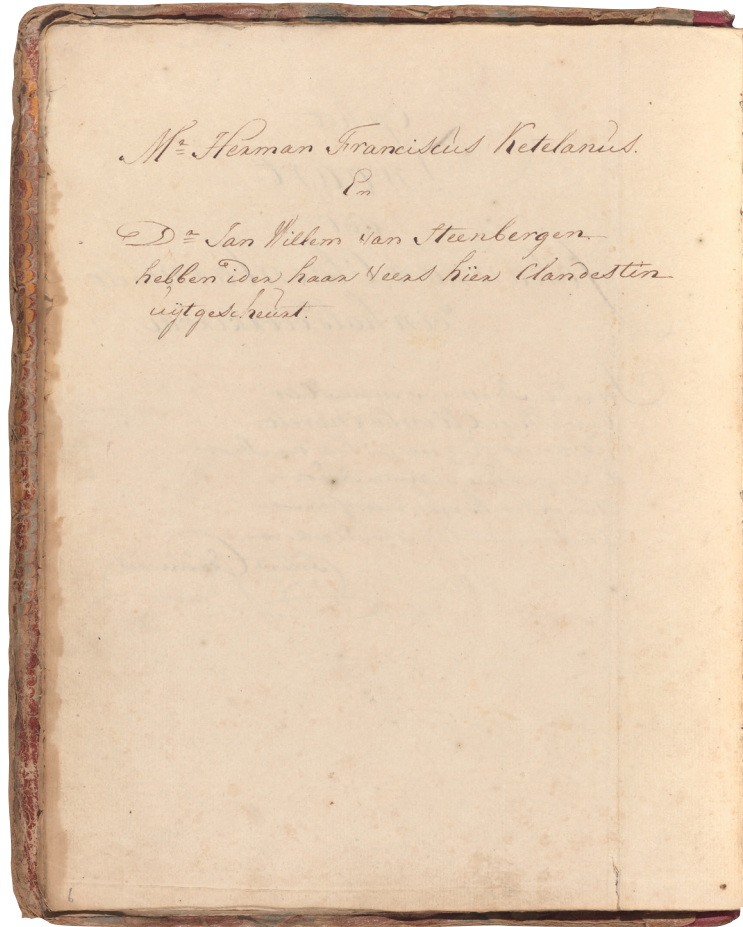 Mr Herman Franciscus Ketelanus.
En
Dr Jan Willem van Steenbergen
hebben ider haar veers hier Clandestin
uijtgescheurt.
6